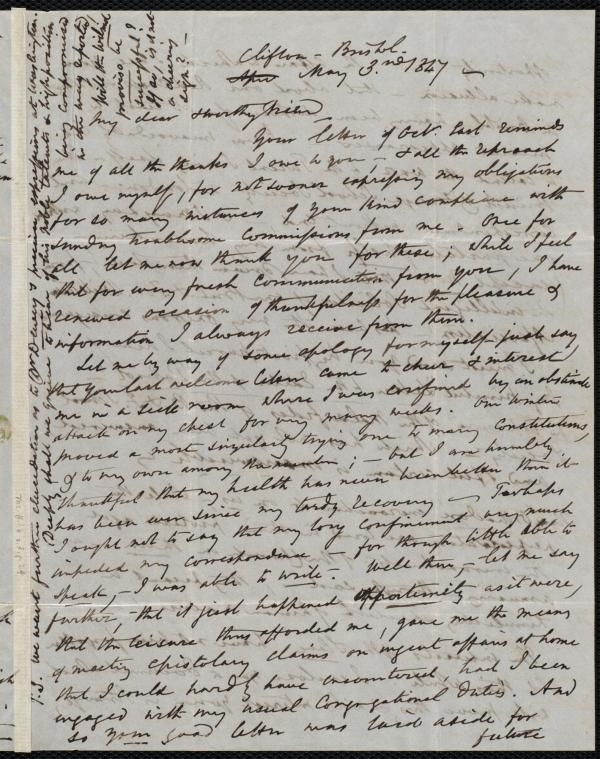 Clifton - Bristol.
May 3.rd 1847
My dear & worthy friend
Your letter of Oct. last reminds
me of all the thanks I owe to you, - & all the reproach
I owe myself, for not sooner expressing my obligations
for so many instances of your kind compliance with
sundry troublesome commissions from me. Once for
all let me now thank you for these; while I feel
that for every fresh communication from you, I have
renewed occasion of thankfulness for the pleasure &
information I always receive from them.
Let me by way of some apology for myself just say,
that your last welcome letter came to cheer & interest
me in a sick room where I was confined by an obstinate
attack on my chest for very many weeks. Our winter
proved a most singularly trying one to many constitutions,
& to my own among the number; - but I am humbly
thankful that my health has never been better than it
has been ever since my tardy recovery - Perhaps
I ought not to say that my long confinement very much
impeded my correspondence - for though little able to
speak, - I was able to write. - Well then, - let me say
further, - that it just happened opportunely as it were,
that the leisure thus afforded me, gave me the means
of meeting epistolary claims on urgent affairs at home
that I could hardly have encountered, had I been
engaged with my usual Congregational duties. And
so your good letter was laid aside for
future
P.S. We want further elucidation as to Mr Dewey's preaching at Washington.
Deeply shall we grieve to hear of his noble talents & high position
being compromised
in the way reported
Will the Wilmot
proviso be
successful?
is it not
a cheering
sign? -